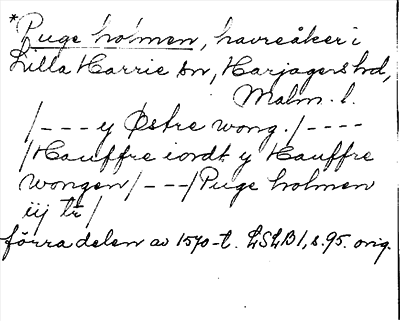 *Puge holmen, havreåker i
Lilla Harrie sn, Harjagers hd,
Malm. l.
/--- y Østre wong./----
/Hauffre iordt y Hauffre
wongen/---/Puge holmen
iij tr/
förra delen av 1570-t. LSLB1, s.95. orig.